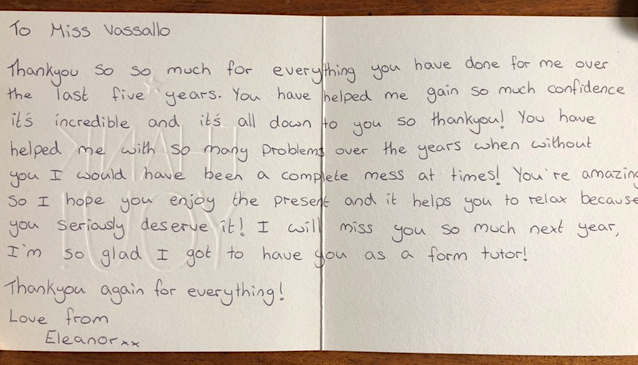 To Miss Vassallo
Thankyou so so much for everything you have done for me over
the last five years. You have helped me gain so much confidence
it's incredible and it's all down to you so thankyou! You have
helped me with so many problems over the years when without
you I would have been a complete mess at times! You're amazing
so I hope you enjoy the present and it helps you to relax because
you seriously deserve it! I will miss you so much next year,
I'm so glad I got to have you as a form tutor!
Thankyou again for everything!
Love from
Eleanor xx